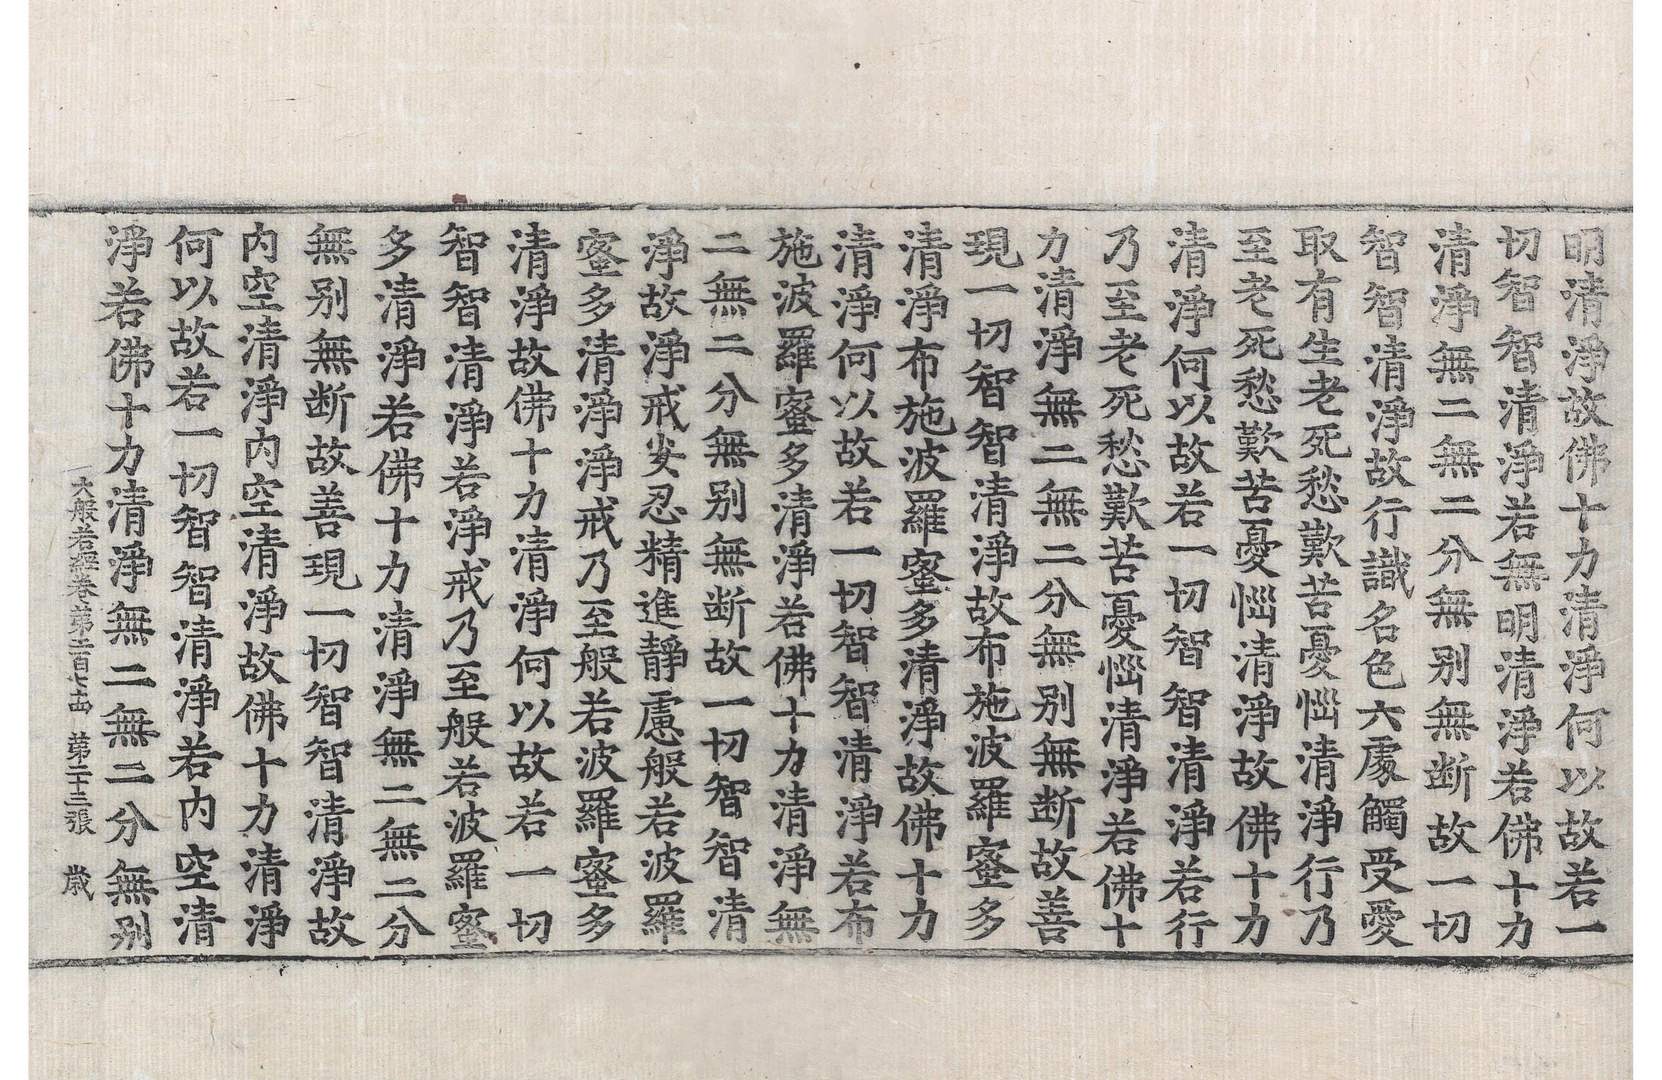 明清淨故佛十力清淨何以故若一
切智智清淨若無明清淨若佛十力
清淨無二無二分無别無断故一切
智智清淨故行識名色六處觸受愛
取有生老死愁歎苦憂惱清淨行乃
至老死愁歎苦憂惱清淨故佛十力
清淨何以故若一切智智清淨若行
乃至老死愁歎苦憂惱清淨若佛十
力清淨無二無二分無别無断故善
現一切智智清淨故布施波羅蜜多
清淨布施波羅蜜多清淨故佛十力
清淨何以故若一切智智清淨若布
施波羅蜜多清淨若佛十力清淨無
二無二分無别無断故一切智智清
淨故淨戒安忍精進靜慮般若波羅
蜜多清淨淨戒乃至般若波羅蜜多
清淨故佛十力清淨何以故若一切
智智清淨若淨戒乃至般若波羅蜜
多清淨若佛十力清淨無二無二分
無别無断故善現一切智智清淨故
内空清淨内空清淨故佛十力清淨
何以故若一切智智清淨若内空清
淨若佛十力清淨無二無二分無别
大般若經卷第二百七十四 第二十三張 歲